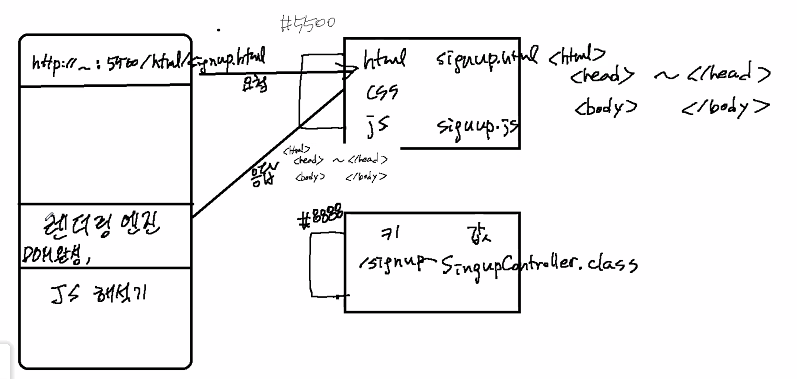 #5500
http://~:5500/html/signup.html
요청
html signup.html <html>
<head> ~ </head>
<body> </body>
css
js signup.js
응답
<html>
<head> ~ </head>
<body> </body>
렌더링 엔진
DOM완성,
JS 해석기
#8888
키 값
/signup SingupController.class